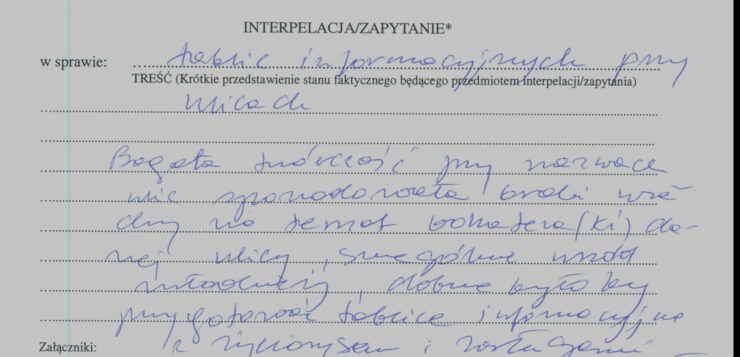 INTERPELACJA/ZAPYTANIE*
w sprawie: tablic informacyjnych przy
TREŚĆ (Krótkie przedstawienie stanu faktycznego będącego przedmiotem interpelacji/zapytania)
ulicach
Bogata twórczość przy nazwach
ulic spowodowała brak wie
dzy na temat bohatera(ki) da-
nej ulicy, szczególnie wśród
młodzieży, dobrze było by
przygotować tablice informacyjne
Załączniki: z życiorysem i zasługami